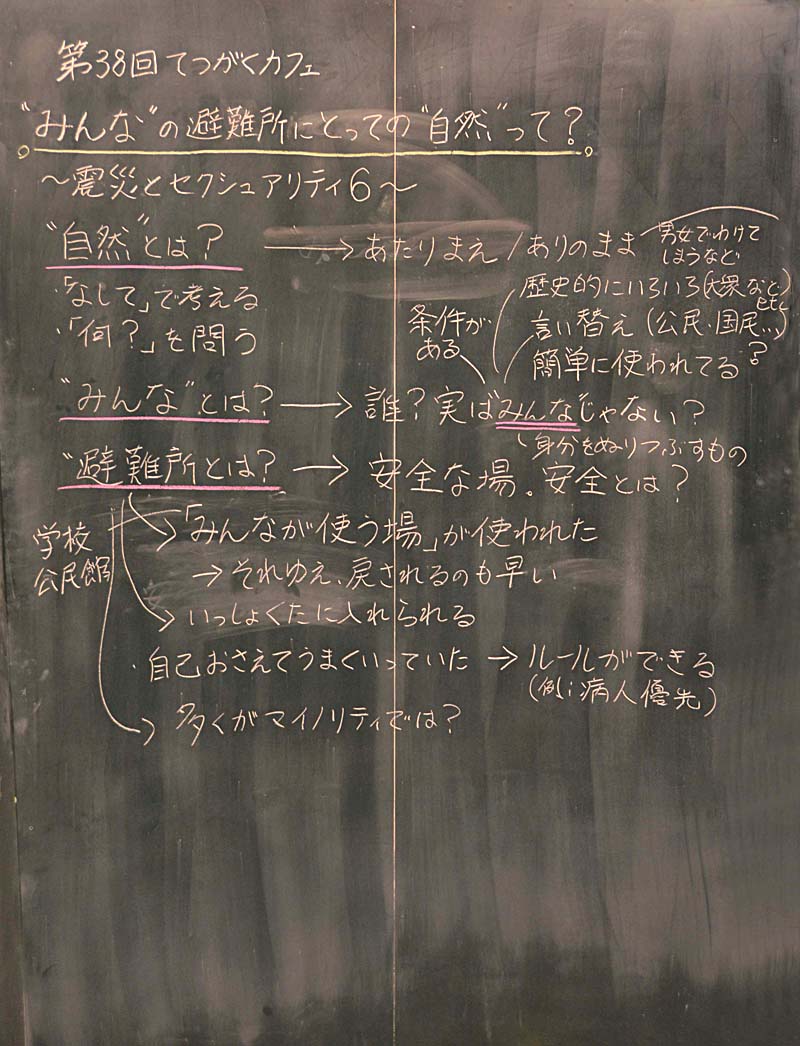 第38回てつがくカフェ
"みんな"の避難所にとっての"自然"って?
～震災とセクシュアリティ6～
"自然"とは? → あたりまえ/ありのまま
男女でわけて
しまうなど
・「なして」で考える
・「何?」を問う
条件が
ある
歴史的にいろいろ(大衆など)
言い替え(公民・国民…)
簡単に使われてる?
"みんな"とは? → 誰?実は"みんな"じゃない?
身分をぬりつぶすもの
"避難所とは? → 安全な場。安全とは?
学校
公民館
→「みんなが使う場」が使われた
→それゆえ、戻されるのも早い
→いっしょくたに入れられる
・自己おさえてうまくいっていた → ルールができる
(例:病人優先)
→ 多くがマイノリティでは?